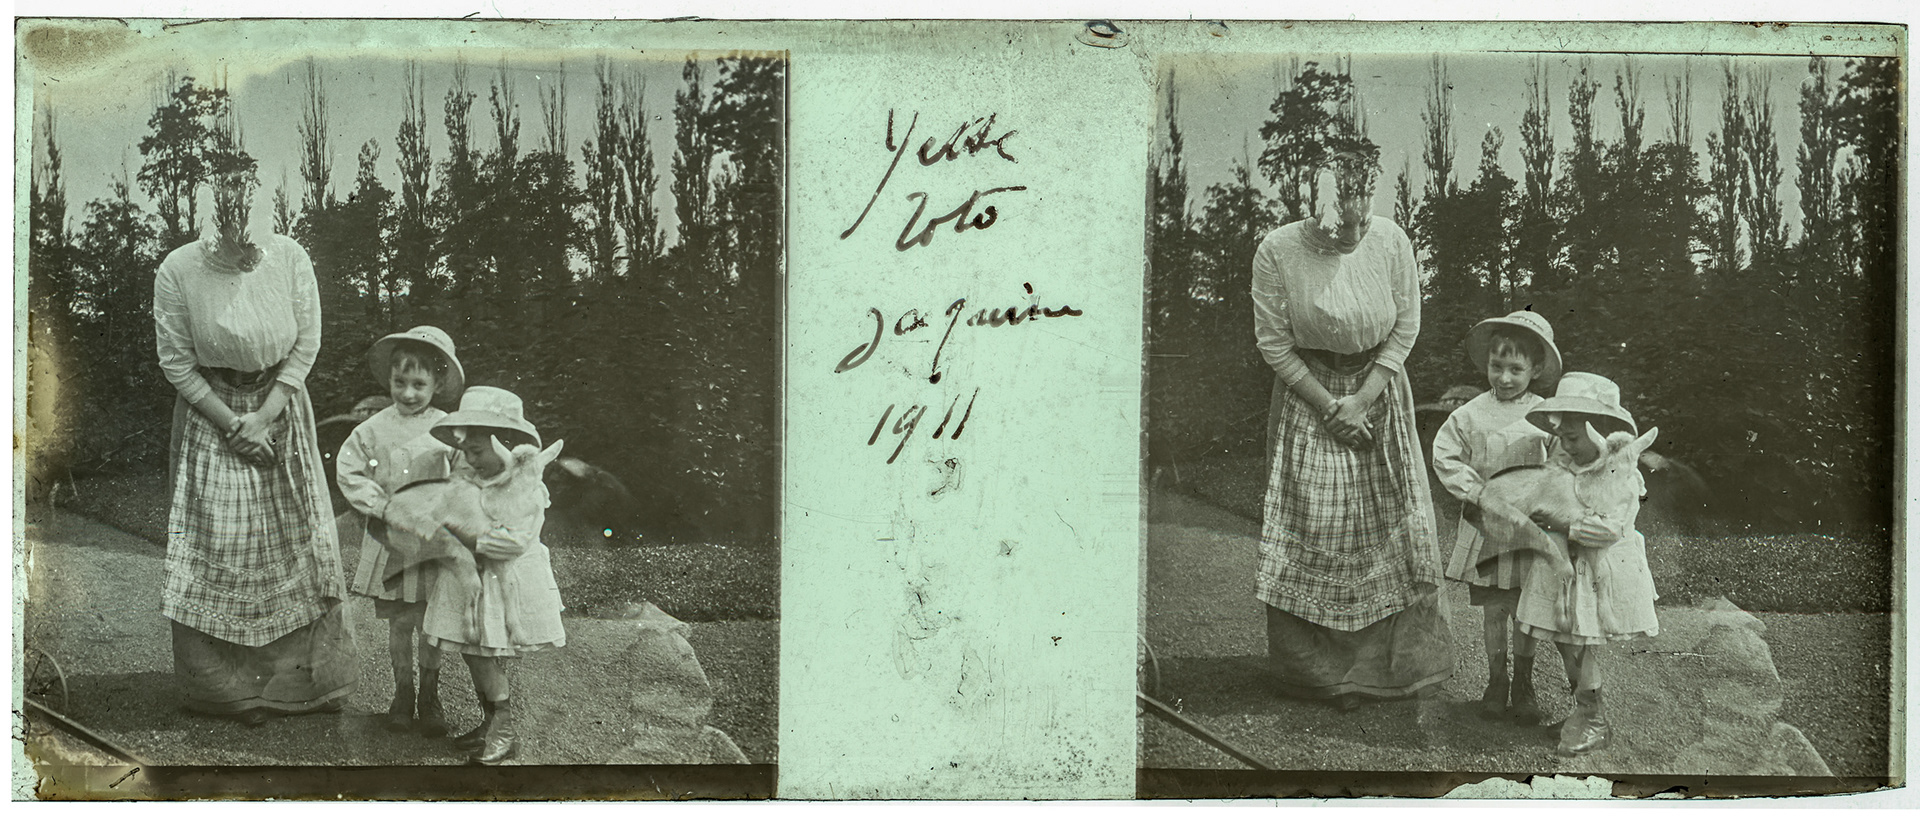 Yette
Toto
Jaquine
1911